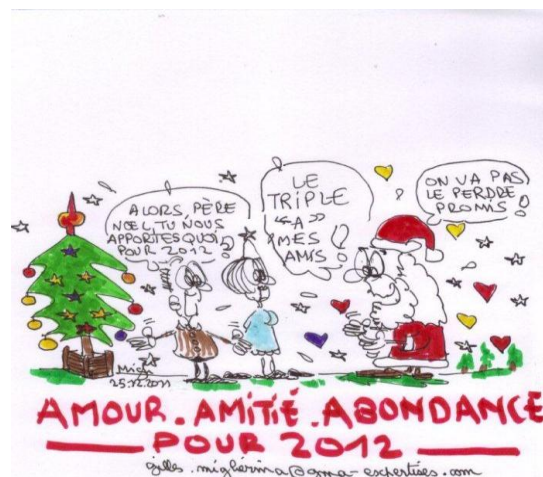 ALORS, PÈRE
NOEL, TU NOUS
APPORTES QUOI
POUR 2012 ?
LE
TRIPLE
"A"
MES
AMIS !
ON VA PAS
LE PERDRE
PROMIS !
Mign
25.12.2011
AMOUR. AMITIÉ. ABONDANCE
POUR 2012
gilles.mighirina@gma-expertises.com